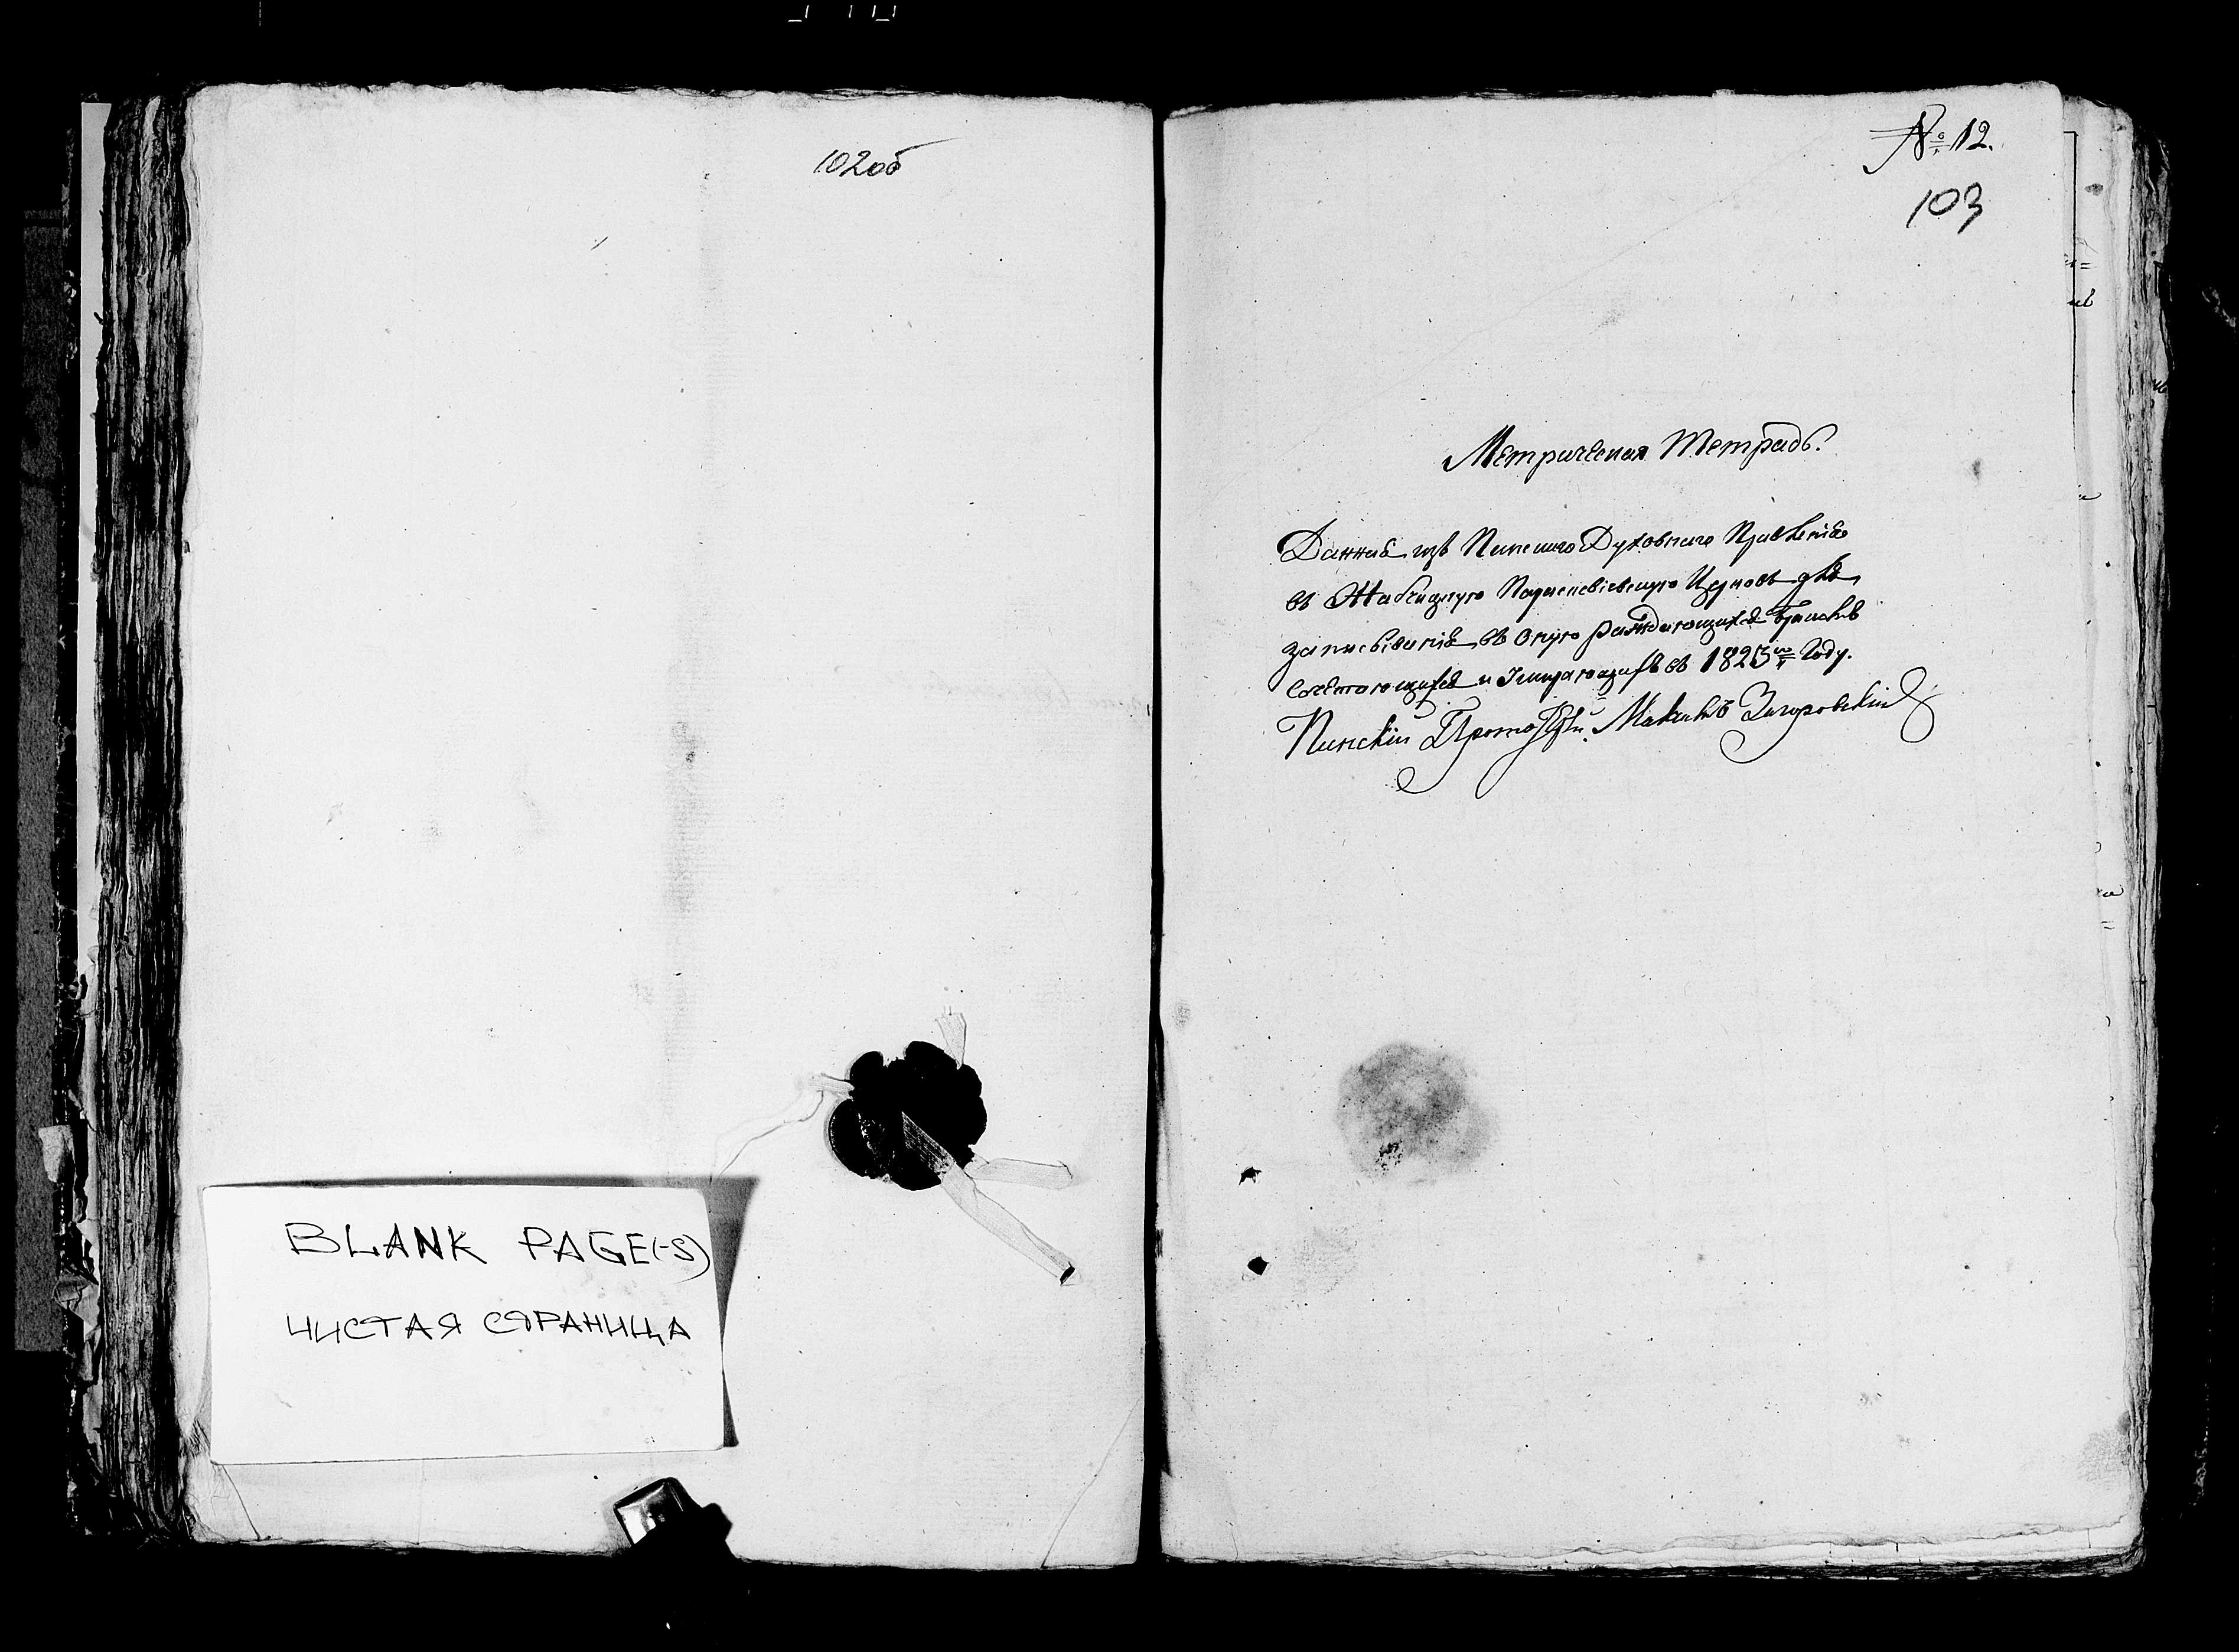 102об
BLANK PAGE(-S)
ЧИСТАЯ СТРАНИЦА
№ 12.
103
Метрическая Тетрадь.
Данная изъ Пинскаго Духовнаго Правленія
въ Жабчицкую Параскевіевскую Церковь для
записыванія въ оную раждающихся Бракомъ
сочетающихся и Умирающихъ въ 1823мъ Году.
Пинскій Прото Загоровскій